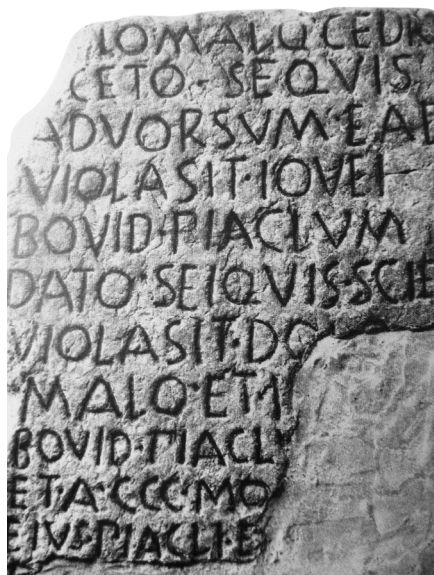 LO MALO CEDR
CETO · SEQVIS
ADVORSVM · EA
VIOLASIT · IOVEI
BOVID · PIACLVM
DATO · SEIQVIS · SCIE
VIOLASIT · DO
MALO · ET · I
BOVID · PIACLV
ET · A · CCC · MO
EIVS · PIACLI · E